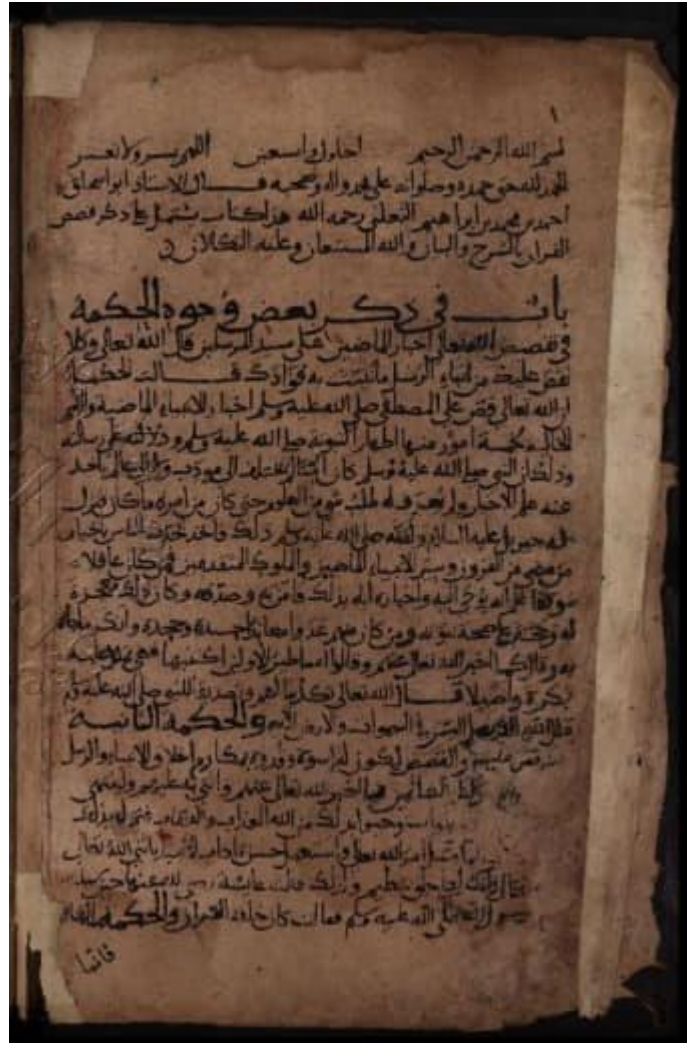 ١
بسم الله الرحمن الرحيم احاول واستعين اللهم يسر ولا تعسر
الحمد لله حق حمده وصلواته على محمد واله وصحبه قال الاستاذ ابو اسحق
احمد بن محمد بن ابراهيم الثعلبي رحمه الله هذا كتاب يشتمل على ذكر قصص
القران بالشرح والبيان والله المستعان وعليه التكلان
باب في ذكر بعض وجوه الحكمة
في تقصص الله تعالى اخبار الماضين على سيد المرسلين قال الله تعالى وكلا
نقص عليك من انباء الرسل ما نثبت به فوادك قالت الحكما
ان الله تعالى قص على المصطفى صلى الله عليه وسلم اخبار الانبياء الماضية والامم
الخالية لخمسة امور منها اظهار النبوته صلى الله عليه وسلم ودلالة على رسالته
وذلك ان النبي صلى الله عليه وسلم كان اميا لم يختلف الى مودب ولا الى عالم ياخذ
عنه علم الاخبار ولم يعرف له طلب شي من العلوم حتى كان من امره ما كان فنزل
عليه جبريل عليه السلام ولقنه صلى الله عليه وسلم ذلك واخذ يحدث الناس باخبار
من مضى من القرون وسير الانبياء الماضين والملوك المتقدمين فمن كان عاقلا
موفقا علم انه يوحى اليه واخباره اياه بذلك وامن به وصدقه وكان ذلك معجزة
له وحجة على صحة نبوته ومن كان منهم عدوا معاندا حسده وجحده وانكر ما جاء
به وقال كما اخبر الله تعالى عنهم وقالوا اساطير الاولين اكتتبها فهي تملى عليه
بكرة واصيلا قال الله تعالى تكذيبا لهم وتصديقا للنبي صلى الله عليه وسلم
قل انزله الذي يعلم السر في السموات والارض الاية والحكمة الثانية
قص عليه القصص ليكون له اسوة وقدوة بمكارم اخلاق الانبيا والرسل
الصالحين فيما اخبر الله تعالى عنهم واثنى به عليهم ولينتهي
امر الله تعالى واستعمل حسن اداب الانبيا باثنى الله تعالى
فقال وانك لعلى خلق عظيم ولذلك قالت عائشة رضي الله عنها حين سئلت
صلى الله عليه وسلم فقالت كان خلقه القران والحكمة الثالثة
فانها